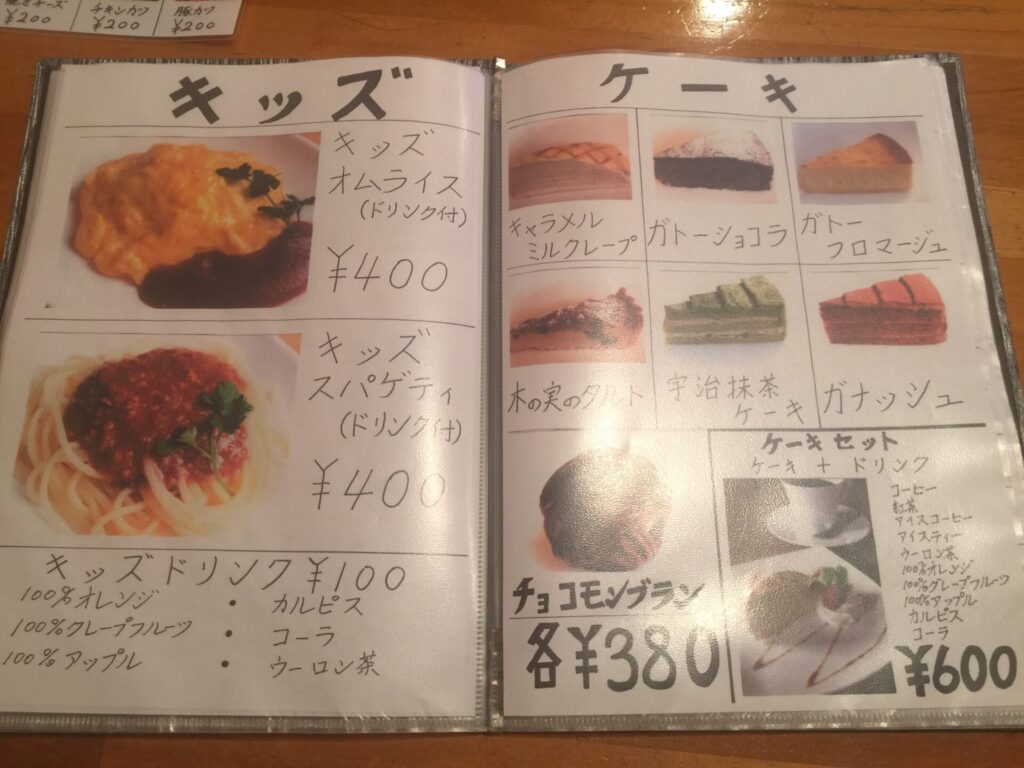 チーズ
¥200
チキンカツ
¥200
豚カツ
¥200
キッズ
キッズ
オムライス
(ドリンク付)
¥400
キッズ
スパゲティ
(ドリンク付)
¥400
キッズドリンク ¥100
100%オレンジ ・ カルピス
100%グレープフルーツ ・ コーラ
100%アップル ・ ウーロン茶
ケーキ
キャラメル
ミルクレープ
ガトーショコラ
ガトー
フロマージュ
木の実のタルト
宇治抹茶
ケーキ
ガナッシュ
チョコモンブラン
各¥380
ケーキセット
ケーキ + ドリンク
コーヒー
紅茶
アイスコーヒー
アイスティー
ウーロン茶
100%オレンジ
100%グレープフルーツ
100%アップル
カルピス
コーラ
¥600